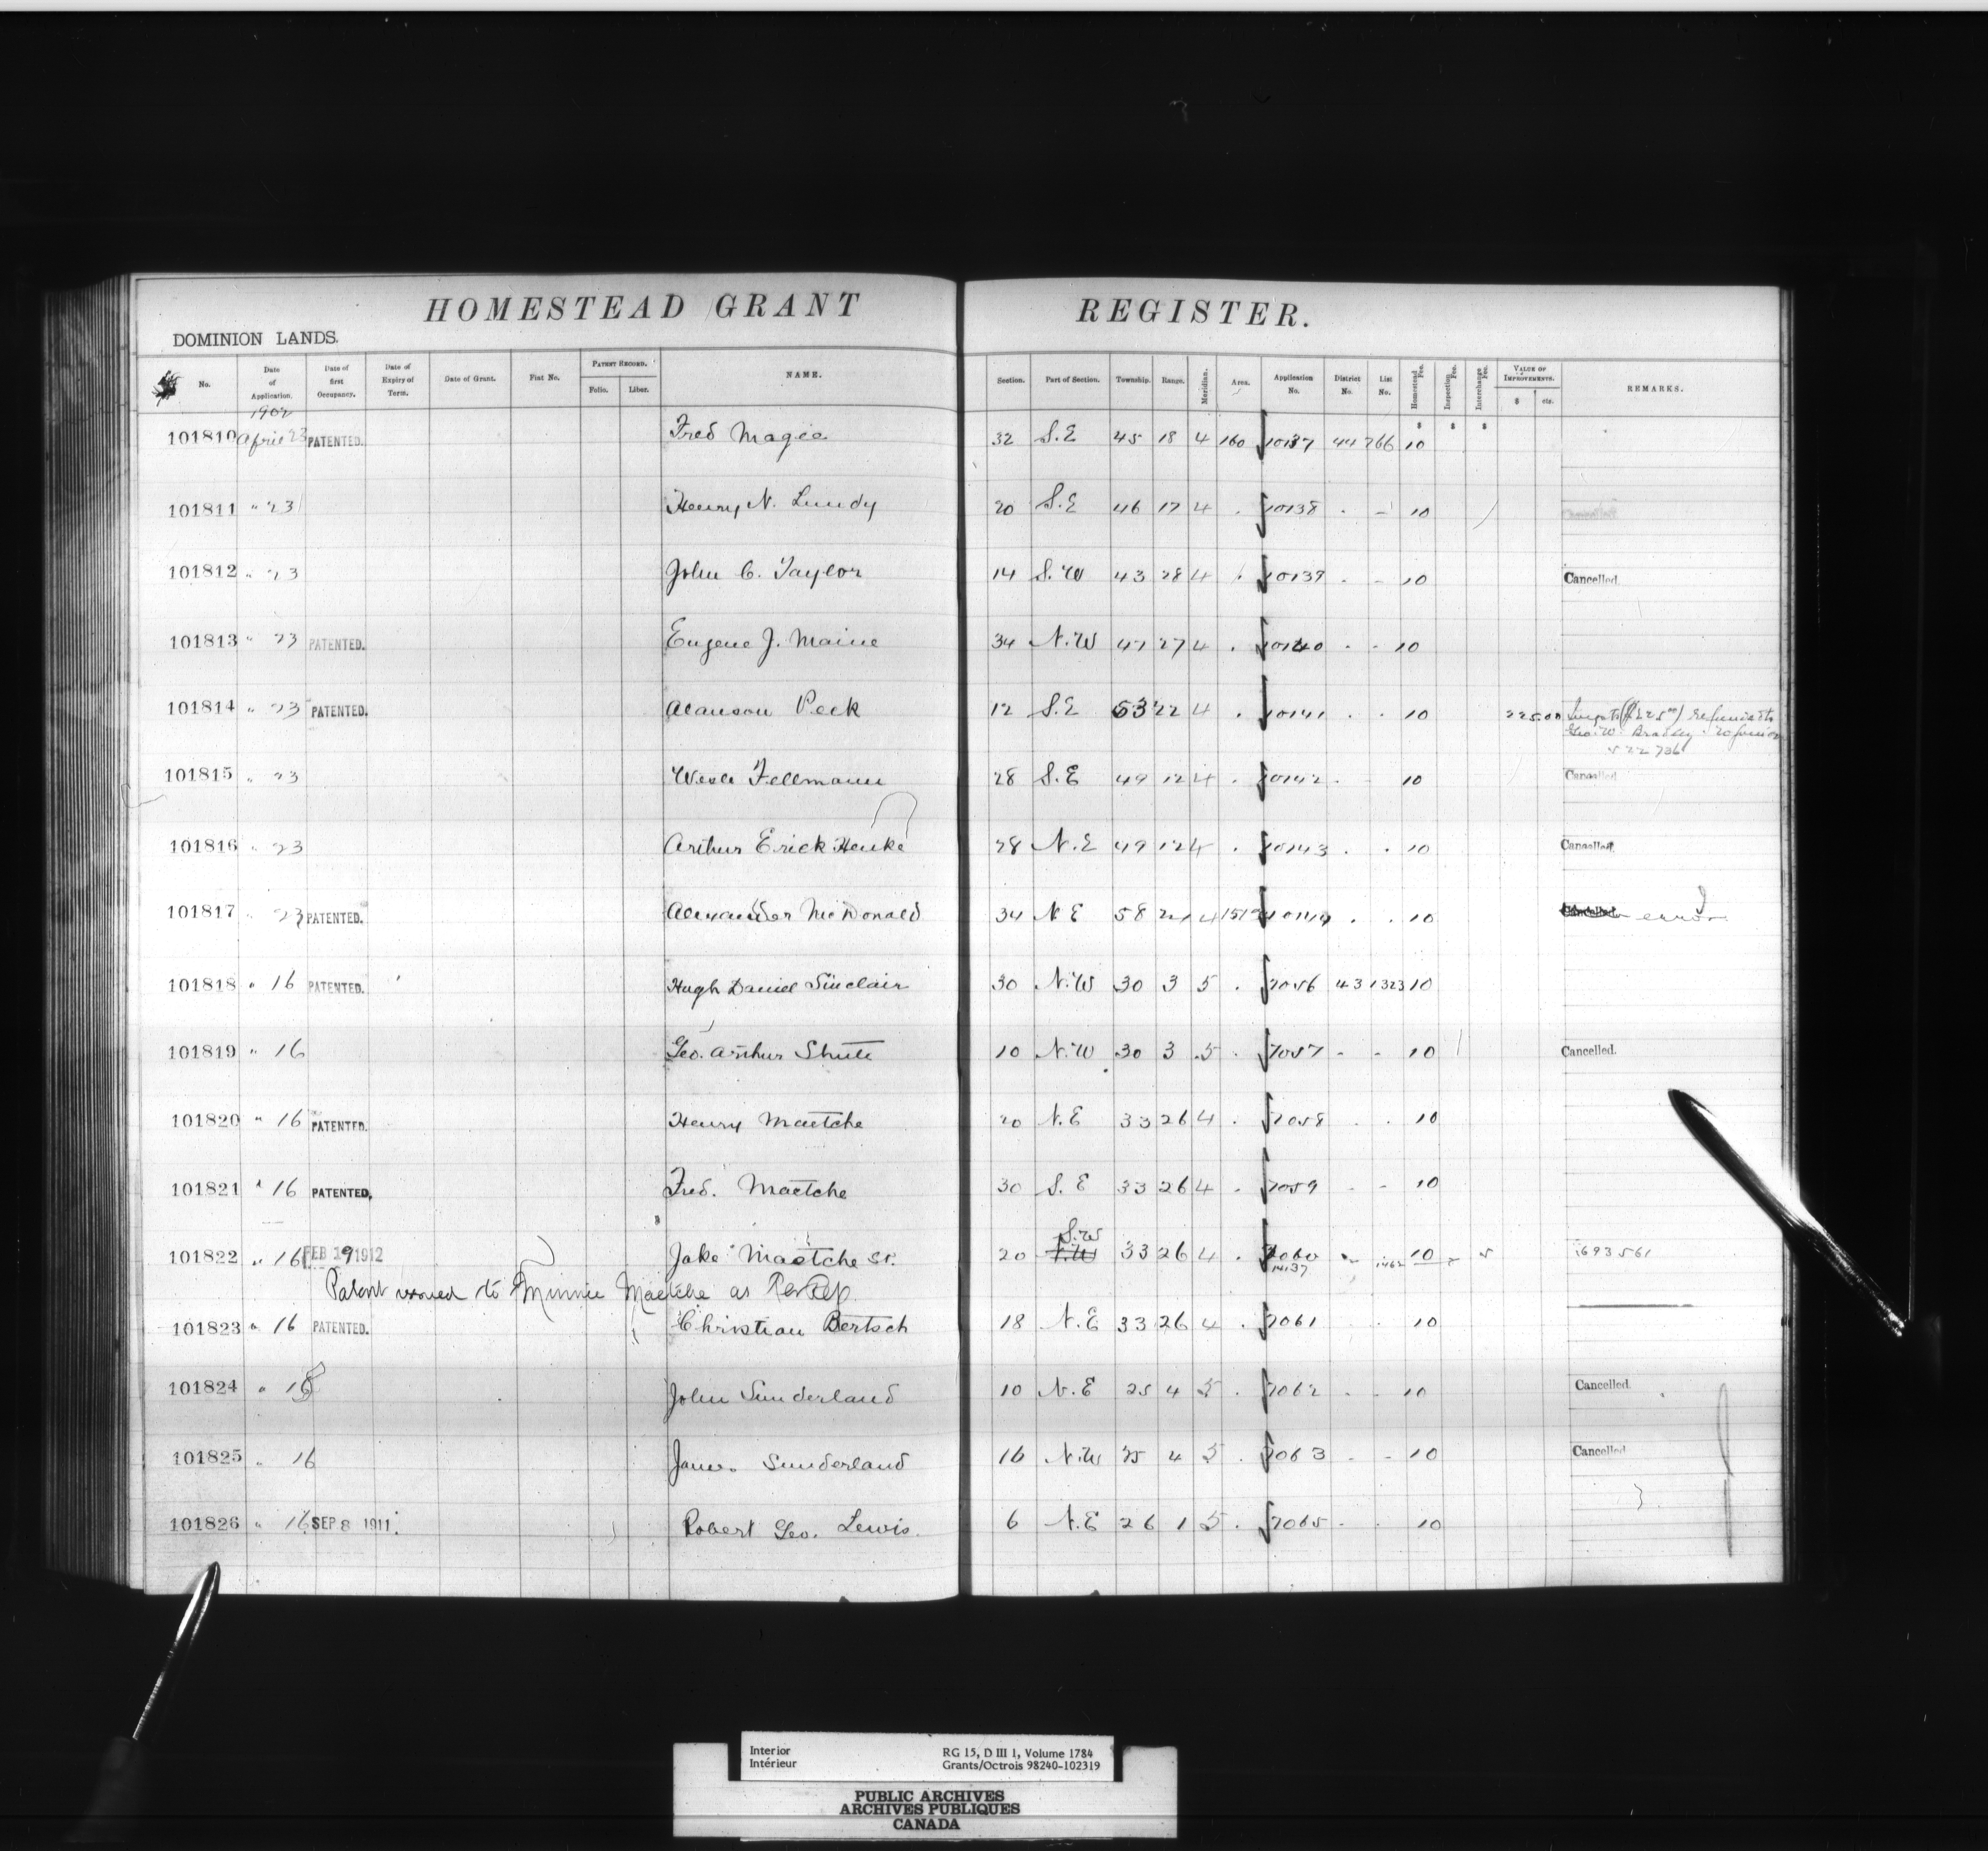 HOMESTEAD GRANT REGISTER.
DOMINION LANDS.
No. Date of Application. Date of first Occupancy. Date of Expiry of Term. Date of Grant. Fiat No. PATENT RECORD. Folio. Liber. NAME. Section. Part of Section. Township. Range. Meridian. Area. Application No. District No. List No. Homestead Fee. Inspection Fee. Interchange Fee. VALUE OF IMPROVEMENTS. $ cts. REMARKS.
1902
101810 April 23 PATENTED. Fred Magee 32 S.E 45 18 4 160 10137 44 766 10
101811 " 23 Henry N. Lundy 20 S.E 46 17 4 . 10138 . - 10 Cancelled
101812 " 23 John C. Taylor 14 S.W 43 28 4 . 10139 . - 10 Cancelled.
101813 " 23 PATENTED. Eugene J. Maine 34 N.W 47 27 4 . 10140 . - 10
101814 " 23 PATENTED. Alanson Peck 12 S.E 53 22 4 . 10141 . . 10 225.00
Geo. W. Bradley
522736
101815 " 23 Fellmann 28 S.E 49 12 4 . 10142 . 10 Cancelled
101816 " 23 Arthur Erick Henke 28 N.E 49 12 4 . 10143 . . 10 Cancelled.
101817 " 23 PATENTED. Alexander McDonald 34 N E 58 4 . . 10 Cancelled error
101818 " 16 PATENTED. Hugh Daniel Sinclair 30 N.W 30 3 5 . 7056 43 1323 10
101819 " 16 Geo. Arthur Shute 10 N.W 30 3 5 . 7057 - - 10 Cancelled.
101820 " 16 PATENTED. Henry Maetche 20 N.E 33 26 4 . 7058 . . 10
101821 " 16 PATENTED. Fred. Maetche 30 S.E 33 26 4 . 7059 - - 10
S.W
101822 " 16 FEB 19 1912 Jake Maetche Sr. 20 33 26 4 . 7060 1462 10 5 1693561
14137
Patent issued to Minnie Maetche as Per Rep.
101823 " 16 PATENTED. Christian Bertsch 18 N.E 33 26 4 . 7061 . . 10
101824 " 16 John Sunderland 10 N.E 25 4 5 . 7062 . - 10 Cancelled.
101825 " 16 James Sunderland 16 N.W 25 4 5 . 7063 - - 10 Cancelled
101826 " 16 SEP 8 1911 Robert Geo. Lewis. 6 N.E 26 1 5 . 7065 - . 10
Interior RG 15, D III 1, Volume 1784
Intérieur Grants/Octrois 98240-102319
PUBLIC ARCHIVES
ARCHIVES PUBLIQUES
CANADA